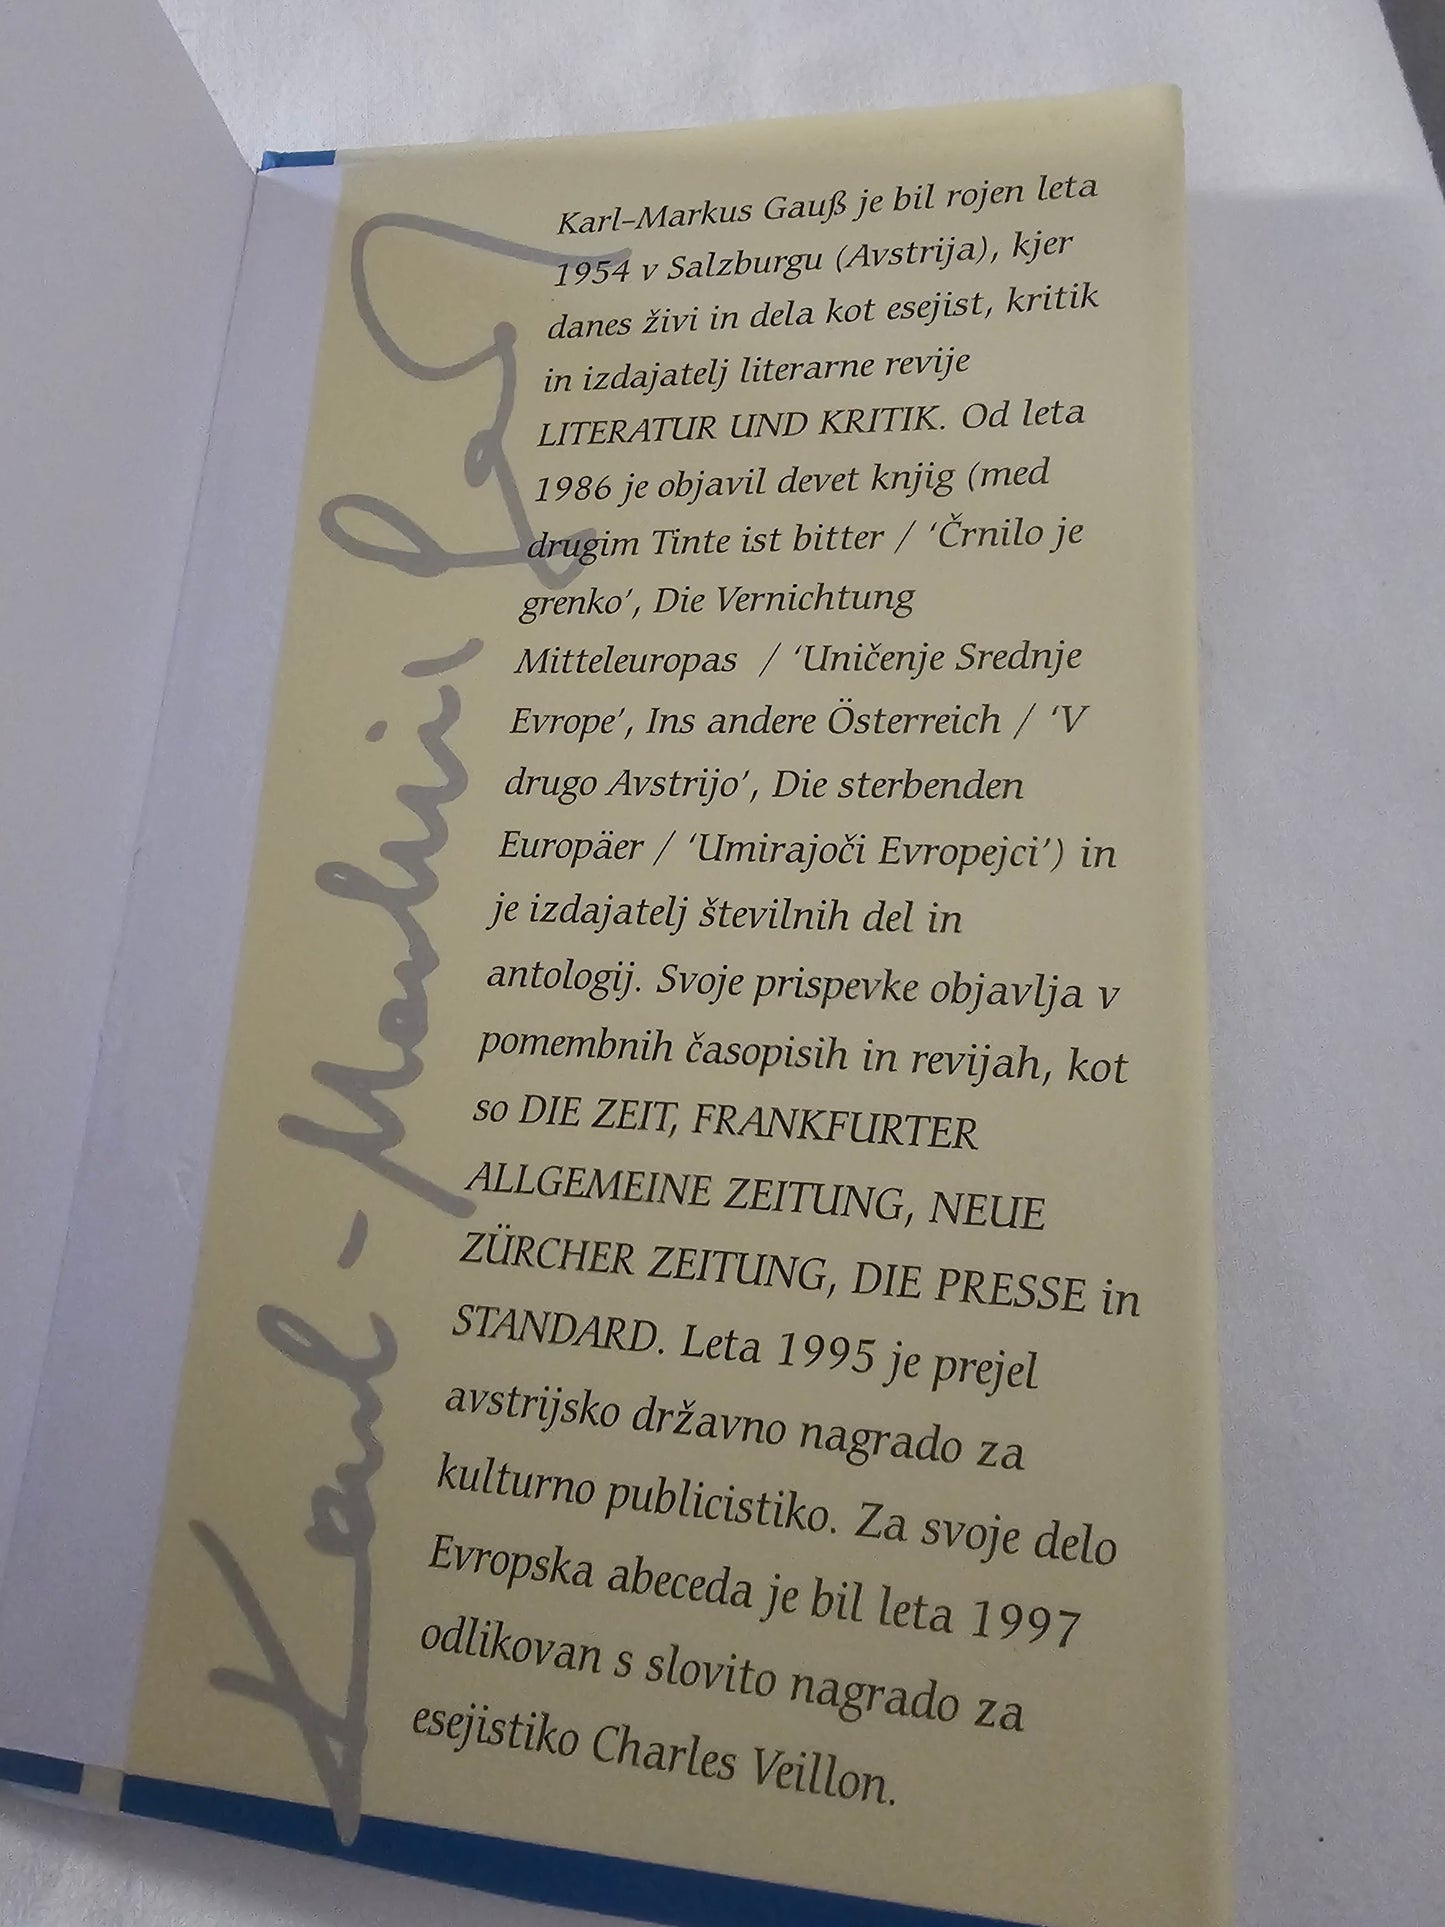 Karl–Markus Gauß je bil rojen leta
1954 v Salzburgu (Avstrija), kjer
danes živi in dela kot esejist, kritik
in izdajatelj literarne revije
LITERATUR UND KRITIK. Od leta
1986 je objavil devet knjig (med
drugim Tinte ist bitter / ‘Črnilo je
grenko’, Die Vernichtung
Mitteleuropas / ‘Uničenje Srednje
Evrope’, Ins andere Österreich / ‘V
drugo Avstrijo’, Die sterbenden
Europäer / ‘Umirajoči Evropejci’) in
je izdajatelj številnih del in
antologij. Svoje prispevke objavlja v
pomembnih časopisih in revijah, kot
so DIE ZEIT, FRANKFURTER
ALLGEMEINE ZEITUNG, NEUE
ZÜRCHER ZEITUNG, DIE PRESSE in
STANDARD. Leta 1995 je prejel
avstrijsko državno nagrado za
kulturno publicistiko. Za svoje delo
Evropska abeceda je bil leta 1997
odlikovan s slovito nagrado za
esejistiko Charles Veillon.
Karl-Markus